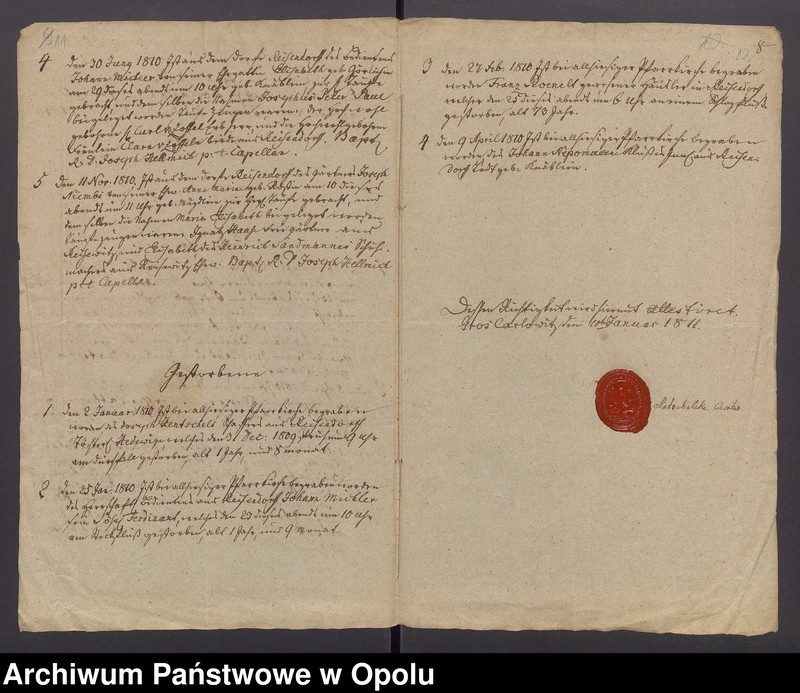 11
4 den 30 Juny 1810 Ist aus dem Dorfe Reisendorf des Bedientens
Johann Mückler von seiner Ehegattin Elisabeth geb. Görlichin
am 29 dieses abends um 10 Uhr geb. Knäblein zur h. Taufe
gebracht, und dem selben die Nahmen Josephus Peter Paul
beigeleget worden. Taufzeugen waren: der hochwohl
gebohrne H. Carl v. Zoffel und die Hochwohlgebohrne
Fräulein Clara v. beide aus Reisendorf. Bapt.
R. D. Joseph Hellmich p. t. Capellan.
5 den 11 Nov. 1810. Ist aus dem Dorfe Reisendorf des Gärtners Joseph
Niembs von seiner Ehw. Anna Maria geb. am 10 dieses
abends um 11 Uhr geb. Mägdlein zur heil. Taufe gebracht, und
dem selben die Nahmen Maria Elisabeth beigeleget worden
Taufzeugen waren Ignatz Haase Freigärtner aus
Koisewitz, und Elisabeth des Heinrich Sandmannes Schuh-
machers aus Koisewitz Ehw. Bapt. R. D. Joseph Hellmich
p. t. Capellan.
Gestorbene
1. den 2 Januar 1810 Ist bei allhiesiger Pfarrkirche begraben
worden des Joseph Hentschels aus Reisendorf
Töchterl. Hedewig, welches den 31 Dec. 1809 früh um 9 Uhr
am Durchfall gestorben, alt 1 Jahr, und 8 Monat.
2 den 25 Jan. 1810. Ist bei allhiesiger Pfarrkirche begraben worden
des herrschaftl. Bedientens aus Reisendorf Johann Mückler
sein Söhnl. Ferdinant, welches den 23 dieses abends um 10 Uhr
am Steckfluß gestorben, alt 1 Jahr, und 9 Monat.
8
3 den 27 Feb. 1810 Ist bei allhiesiger Pfarrkirche begraben
worden Franz gewesener Häusler in Reisendorf
welcher den 25 dieses abends um 6 Uhr an einem Schlagfluß
gestorben, alt 73 Jahr.
4 den 9 April 1810 Ist bei allhiesiger Pfarrkirche begraben
worden des Johann Nepomucen aus Reisen-
dorf todt geb. Knäblein.
Dessen Richtigkeit wird hiermit attestiret.
Gros Carlowitz den Januar 1811.
Archiwum Państwowe w Opolu